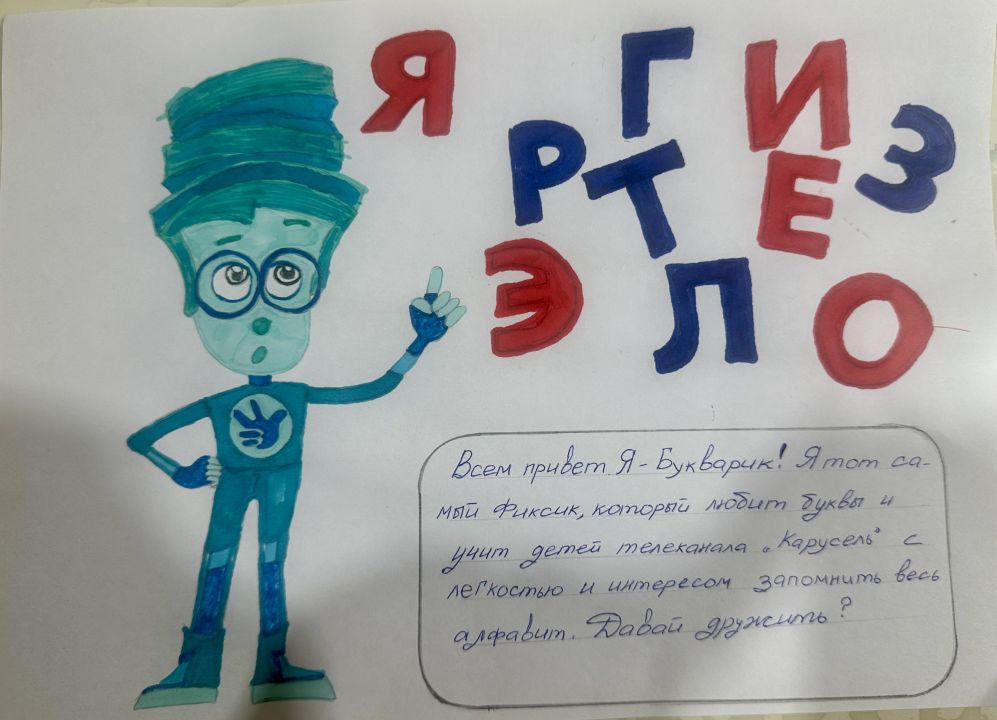 Я
Г
И
Р
Т
Е
З
Э
Л
О
Всем привет. Я - Букварик! Я тот са-
мый Фиксик, который любит буквы и
учит детей телеканала „Карусель" с
легкостью и интересом запомнить весь
алфавит. Давай дружить?